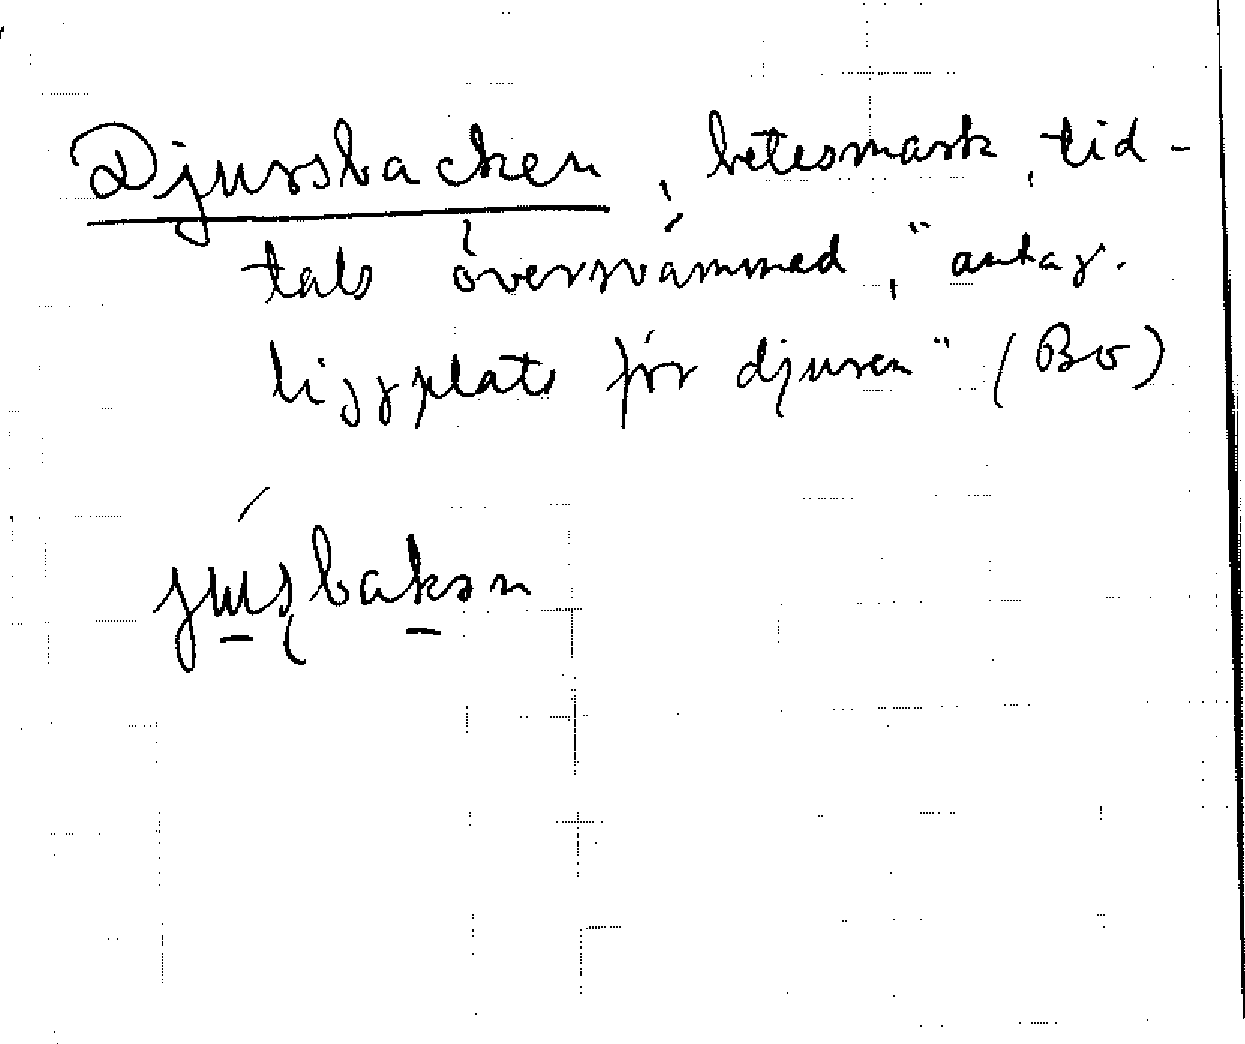 Djursbacken, betesmark, tid-
tals översvämmed, "antag.
liggplats för djuren" (Bo)
jusbakən